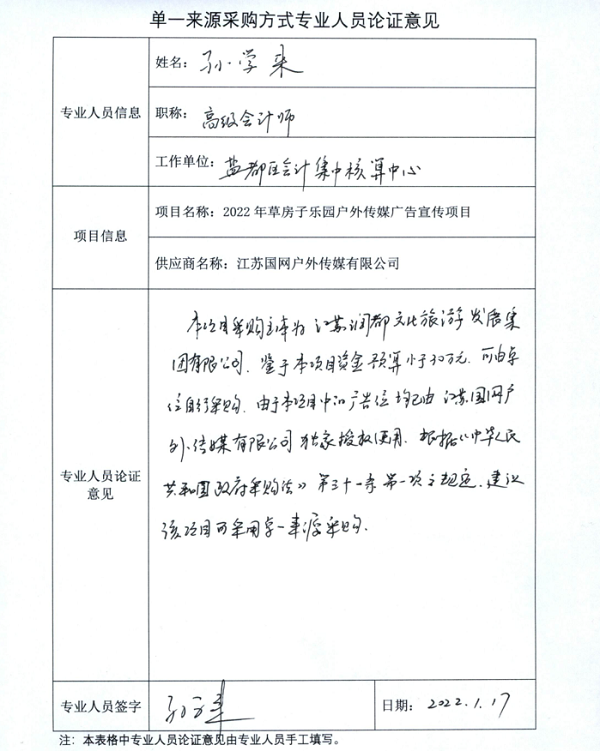 单一来源采购方式专业人员论证意见
专业人员信息
姓名：孙学来
职称：高级会计师
工作单位：盐都区会计集中核算中心
项目信息
项目名称：2022年草房子乐园户外传媒广告宣传项目
供应商名称：江苏国网户外传媒有限公司
专业人员论证
意见
本项目采购主体为江苏润都文化旅游发展集
团有限公司，鉴于本项目资金预算小于30万元，可由单
位自行采购。由于本项目中的广告位均由江苏国网户
外传媒有限公司独家授权使用，根据《中华人民
共和国政府采购法》第三十一条第一项之规定，建议
该项目可采用单一来源采购。
专业人员签字
日期：2022.1.17
注：本表格中专业人员论证意见由专业人员手工填写。